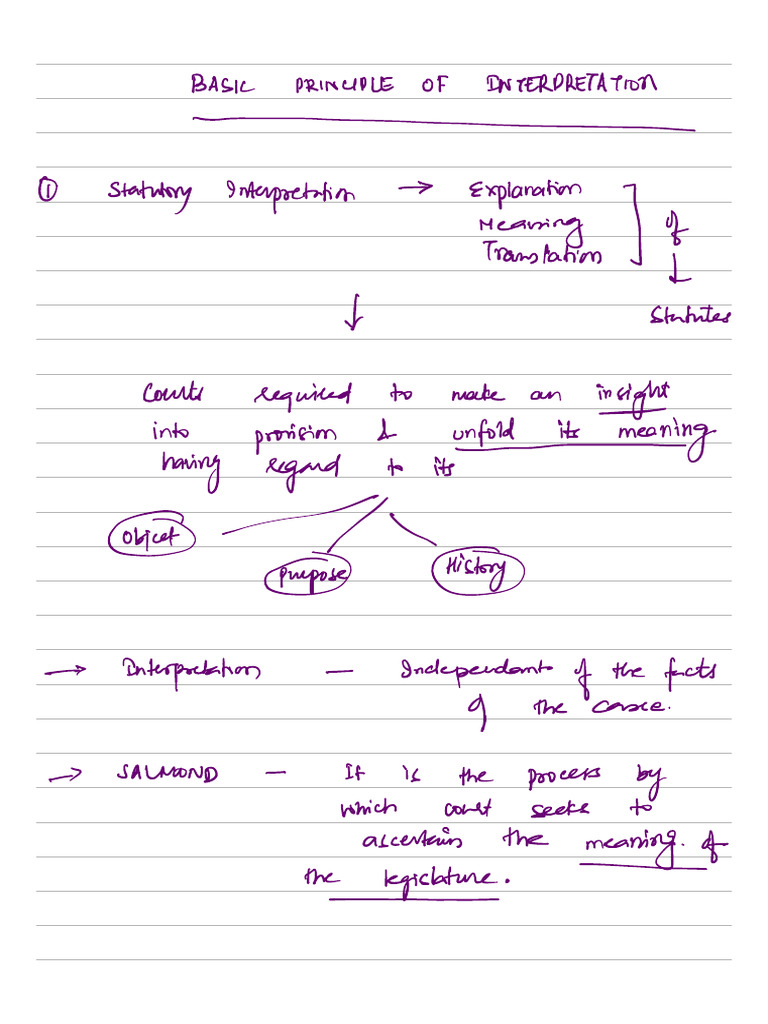 BASIC PRINCIPLE OF INTERPRETATION
① Statutory Interpretation → Explanation
Meaning
Translation
of
↓
Statutes
↓
Courts required to make an insight
into provision & unfold its meaning
having regard to its
Object
purpose
History
→ Interpretation — Independant of the facts
of the case.
→ SALMOND — It is the process by
which court seeks to
ascertain the meaning of
the legislature.